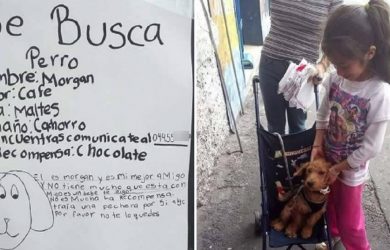 e Busca
Perro
mbre: Morgan
or: Café
a: Maltes
maño: Cachorro
encuentras comunicate al 04455
ecompensa: Chocolate
El es morgan y es mi mejor amigo
y no tiene mucho que esta con
migo es un bebe
no es mucha la recompensa
traía una pechera por si
por favor no te lo quedes